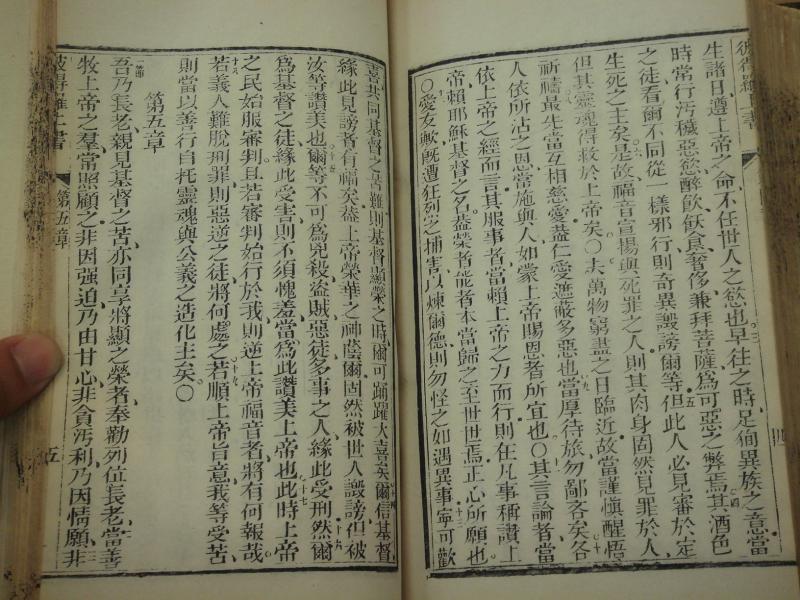 彼得羅上書
四
生諸日遵上帝之命不任世人之慾也早往之時足徇異族之意當
時常行汚穢惡慾醉飲飫食奢侈兼拜菩薩爲可惡之弊焉其酒色
之徒看爾不同從一樣邪行則奇異譭謗爾等但此人必見審於定
生死之主矣是故福音宣揚與死罪之人則其肉身固然見罪於人
但其靈魂得救於上帝矣〇夫萬物窮盡之日臨近故當謹愼醒悟
祈禱最先當互相慈愛蓋仁愛遮蔽多惡也當厚待旅勿鄙吝矣各
人依所沾之恩當施與人如蒙上帝賜恩者所宜也〇其言論者當
依上帝之經而言其服事者當賴上帝之力而行則在凡事稱讚上
帝賴耶穌基督之名益榮者能者本當歸之至世世焉正心所願也
〇愛友歟旣遭狂烈之捕害以煉爾德則勿怪之如遇異事寧可歡
喜共同基督之苦難則基督顯榮之時爾可踴躍大喜矣爾信基督
緣此見謗者有福矣葢上帝榮華之神蔭爾固然被世人譭謗但被
汝等讚美也爾等不可爲兇殺盜賊惡徒多事之人緣此受刑然爾
爲基督之徒緣此受害則不須愧羞當爲此讚美上帝也此時上帝
之民始服審判且若審判始行於我則逆上帝福音者將有何報哉
若義人難脫刑罪則惡逆之徒將何處之若順上帝旨意我等受苦
則當以善行自托靈魂與公義之造化主矣〇
第五章
吾乃長老親見基督之苦亦同享將顯之榮者奉勸列位長老當善
牧上帝之羣常照顧之非因强迫乃由甘心非貪汚利乃因情願非
彼得羅上書
第五章
五